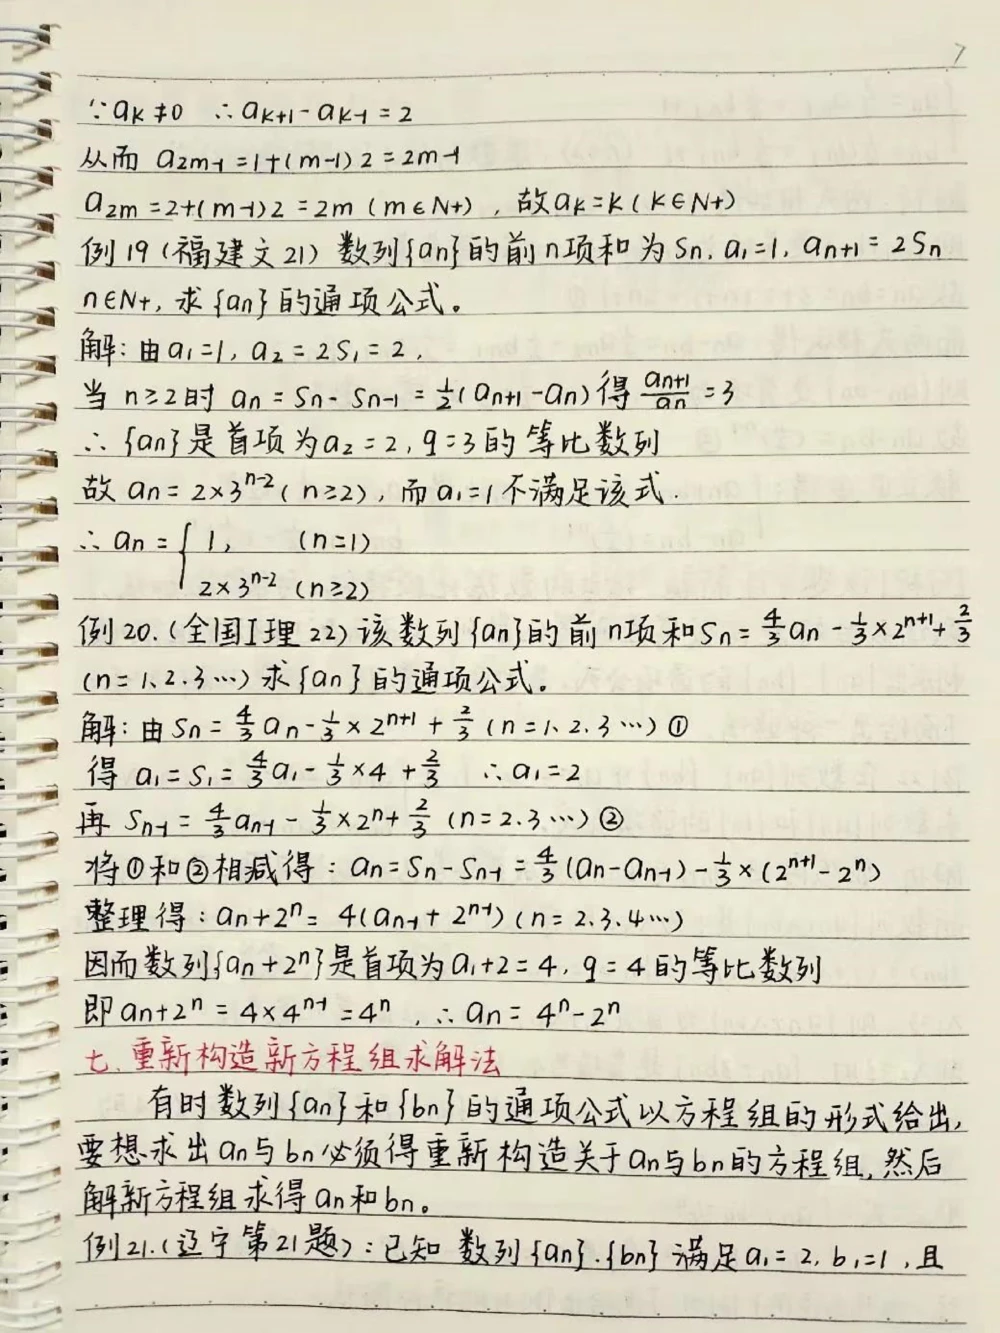 7
∵ak≠0 ∴ak+1-ak-1=2
从而 a2m-1=1+(m-1)2=2m-1
a2m=2+(m-1)2=2m(m∈N+),故ak=k(k∈N+)
例19(福建文21)数列{an}的前n项和为Sn,a1=1,an+1=2Sn
n∈N+,求{an}的通项公式。
解:由a1=1,a2=2S1=2,
当n≥2时 an=Sn-Sn-1=½(an+1-an)得an+1/an=3
∴{an}是首项为a2=2,q=3的等比数列
故an=2×3ⁿ⁻²(n≥2),而a1=1不满足该式.
∴an={1, (n=1)
2×3ⁿ⁻² (n≥2)
例20.(全国I理22)该数列{an}的前n项和Sn=4/3an-1/3×2ⁿ⁺¹+2/3
(n=1、2.3…)求{an}的通项公式。
解:由Sn=4/3an-1/3×2ⁿ⁺¹+2/3(n=1、2.3…)①
得a1=S1=4/3a1-1/3×4+2/3 ∴a1=2
再Sn-1=4/3an-1-1/3×2ⁿ+2/3(n=2.3…)②
将①和②相减得:an=Sn-Sn-1=4/3(an-an-1)-1/3×(2ⁿ⁺¹-2ⁿ)
整理得:an+2ⁿ=4(an-1+2ⁿ⁻¹)(n=2.3.4…)
因而数列{an+2ⁿ}是首项为a1+2=4,q=4的等比数列
即an+2ⁿ=4×4ⁿ⁻¹=4ⁿ,∴an=4ⁿ-2ⁿ
七.重新构造新方程组求解法
有时数列{an}和{bn}的通项公式以方程组的形式给出,
要想求出an与bn必须得重新构造关于an与bn的方程组,然后
解新方程组求得an和bn。
例21.(辽宁第21题):已知数列{an}.{bn}满足a1=2,b1=1,且